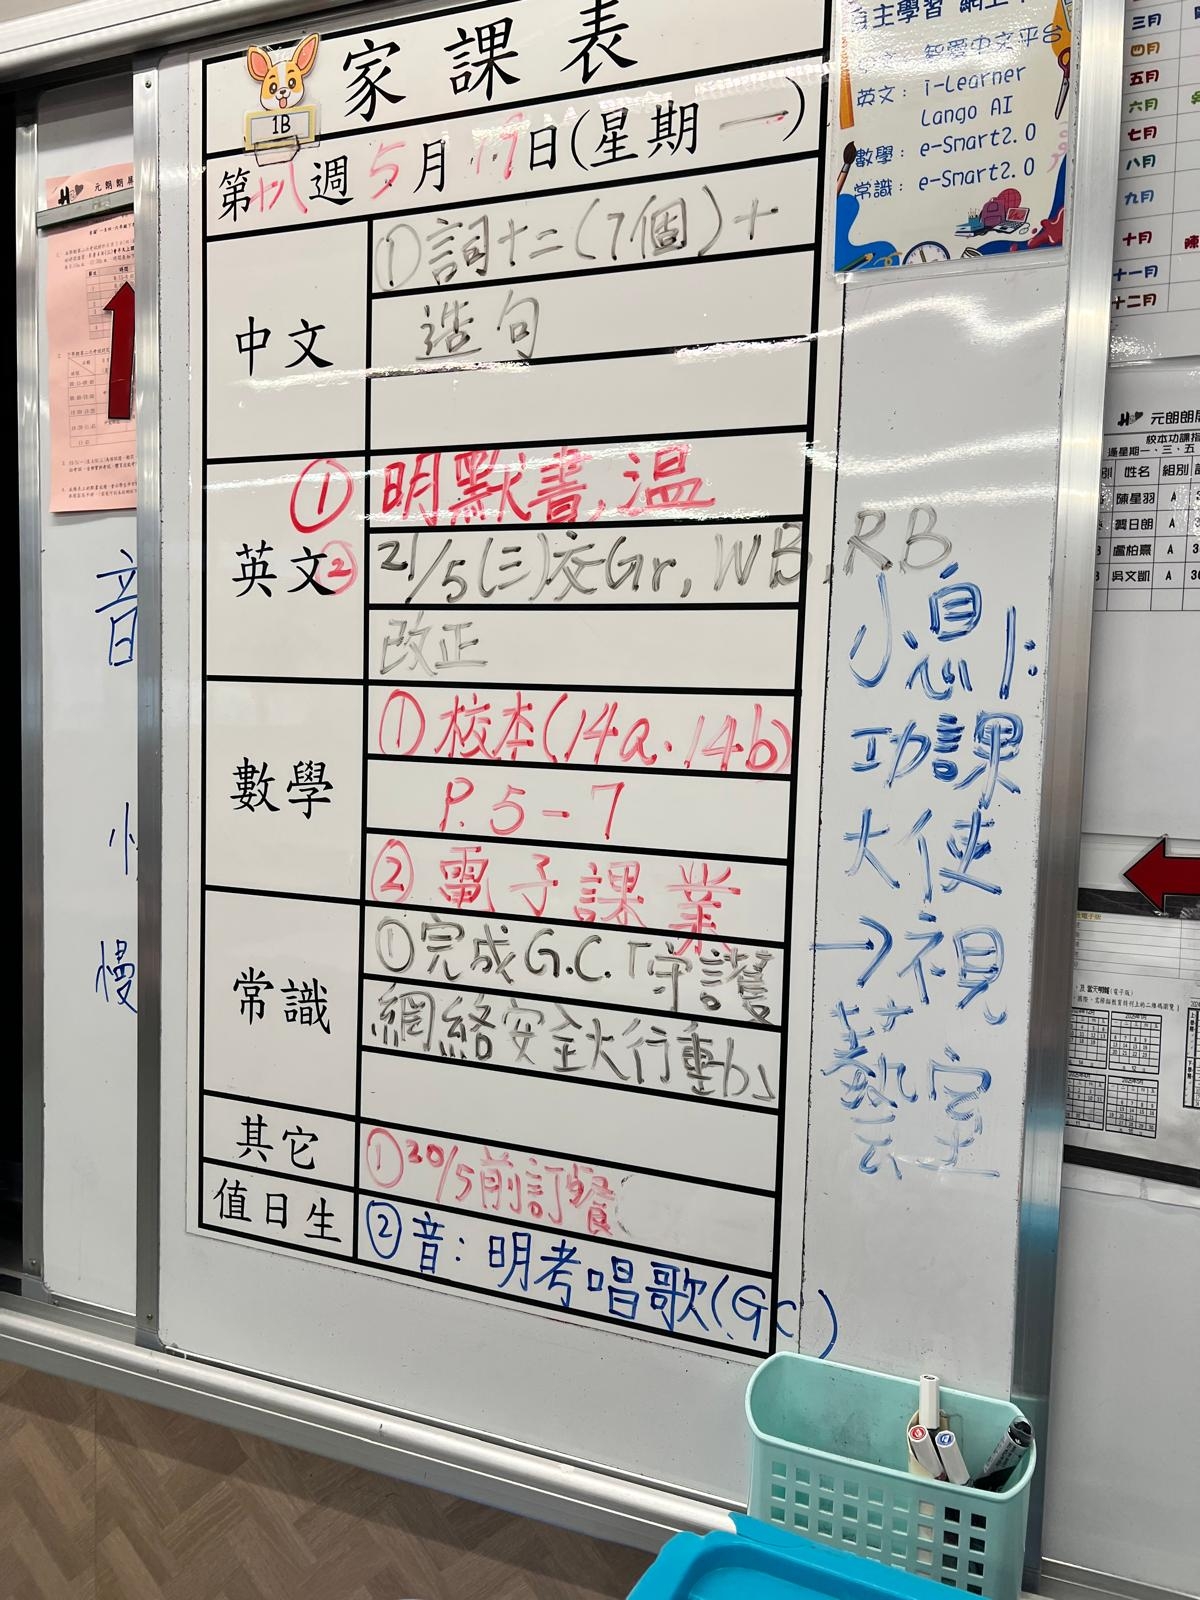 家課表
1B
第十八週5月19日(星期一)
中文
①詞十二(7個)+
造句
英文
①明默書,溫
②21/5(三)交Gr, WB, RB
改正
數學
①校本(14a.14b)
P. 5-7
②電子課業
常識
①完成G.C.「守護
網絡安全大行動」
其它
①30/5前訂餐
值日生
②音:明考唱歌(GC)
小息1:
功課
大使
→視
藝室
自主學習 網上
智愛中文平台
英文: i-Learner
Lango AI
數學: e-Smart2.0
常識: e-Smart2.0
音
慢
三月
四月
五月
六月
七月
八月
九月
十月
十一月
十二月
元朗朗屏
校本功課指
逢星期一、三、五
別 姓名 組別
陳星羽 A
龔日朗 A
盧柏熹 A
吳文凱 A